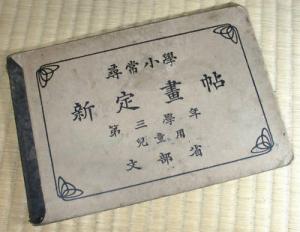 尋常小學
新定畫帖
第三學年
兒童用
文部省